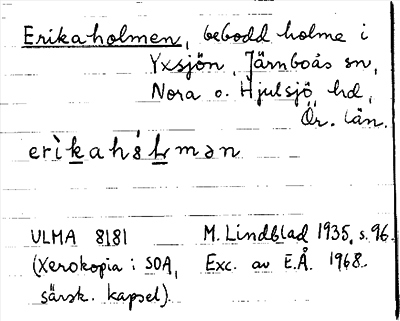 Erikaholmen, bebodd holme i
Yxsjön, Järnboås sn,
Nora o. Hjulsjö hd,
Ör. län.
ULMA 8181 M. Lindblad 1935, s. 96.
(Xerokopia i SOA, Exc. av E.Å. 1968.
särsk. kapsel).